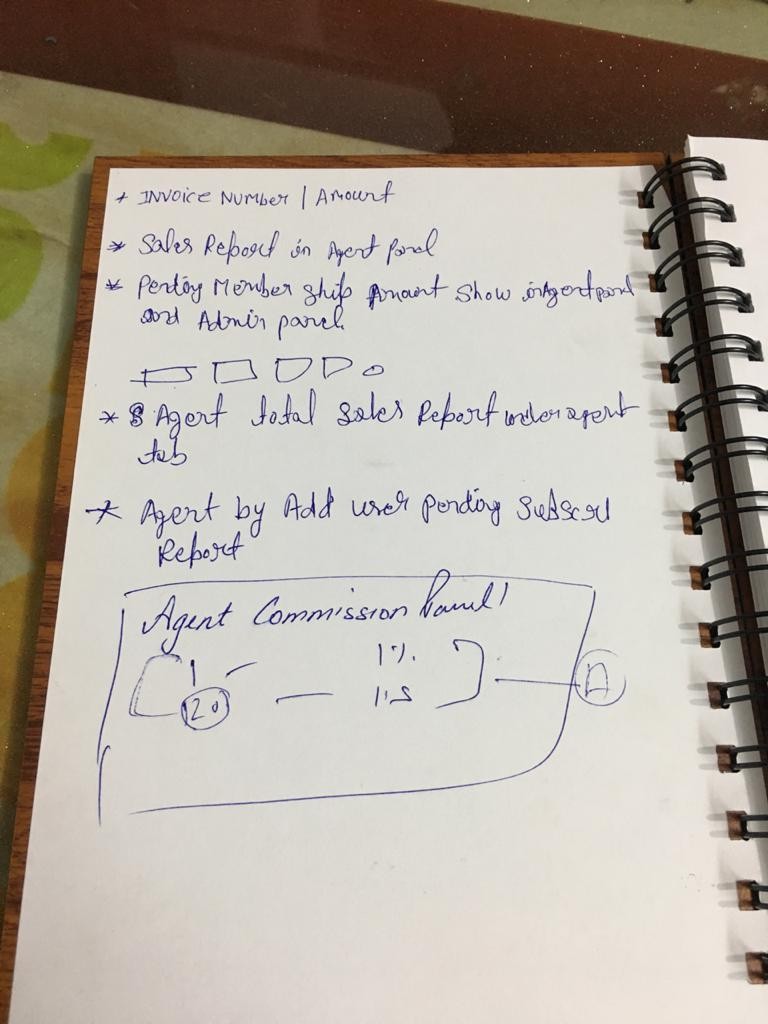 * INVOICE NUMBER | AMOUNT
* Sales Report in Agent Panel
* Pending Member ship Amount Show in Agent panel
and Admin panel
* Agent total Sales Report under agent
tab
* Agent by Add user pending Subscri
Report
Agent Commission Panel
1 - 1%
120 - 1.5
A